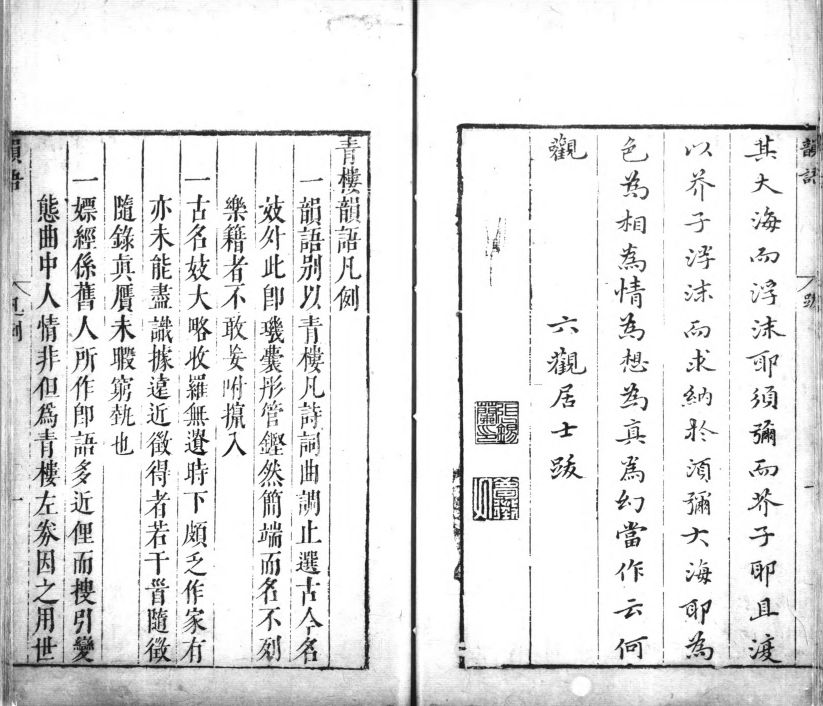 韻語
跋
一
其大海而浮沫耶須彌而芥子耶且渡
以芥子浮沫而求納於須彌大海耶為
色為相為情為想為真為幻當作云何
觀
六觀居士跋
青樓韻語凡例
一韻語别以青樓凡詩詞曲調止選古今名
妓外此卽璣囊彤管鏗然簡端而名不列
樂籍者不敢妄附攛入
一古名妓大略收羅無遺時下頗乏作家有
亦未能盡識據遠近徵得者若干眥隨徵
隨錄真贋未暇窮執也
一嫖經係舊人所作卽語多近俚而搜引變
態曲中人情非但爲青樓左劵因之用世
韻語
凡例
一